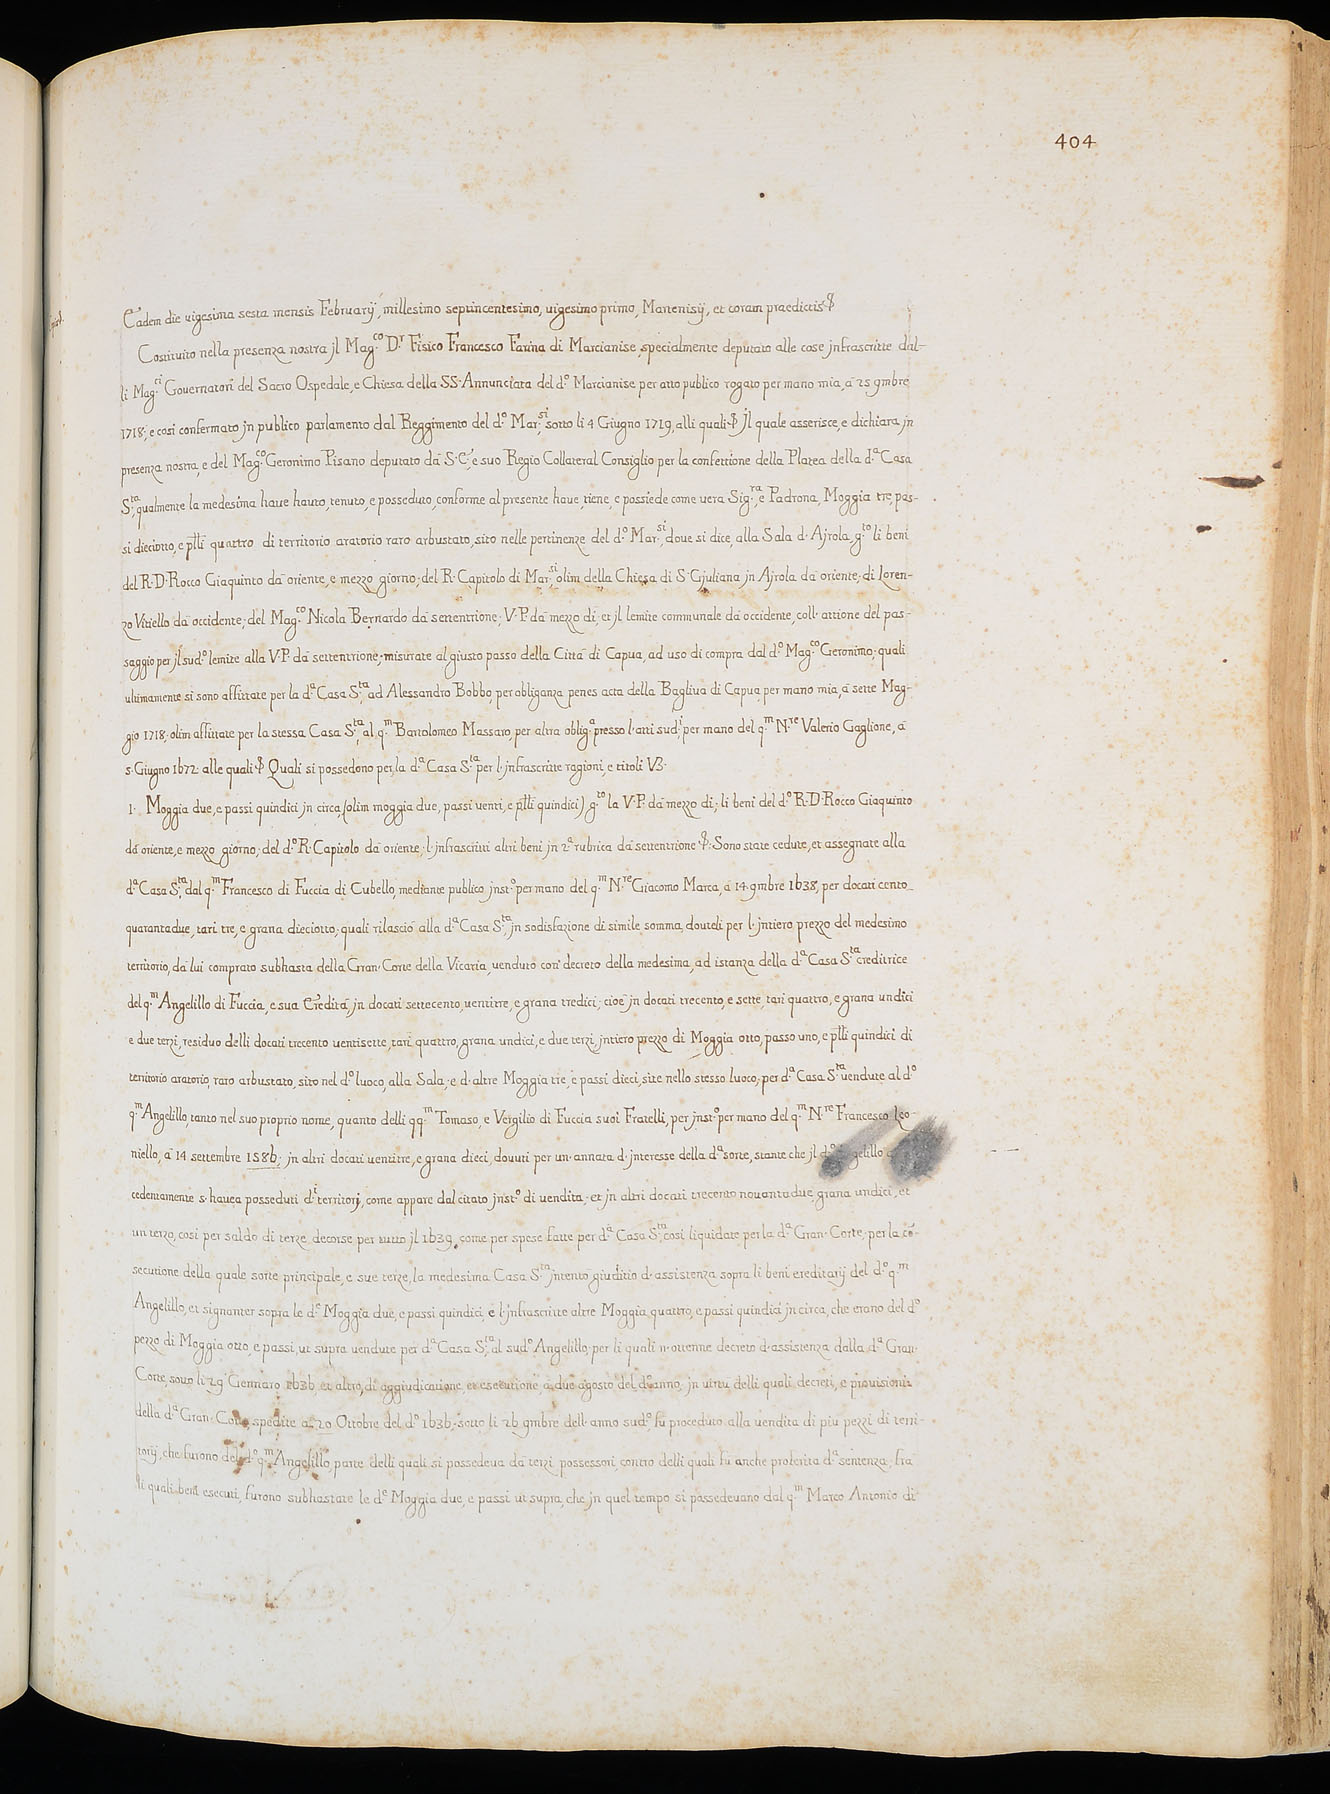 404
Eadem die uigesima sesta mensis Februarij, millesimo septincentesimo, uigesimo primo, Marcnisij, et coram praedictis
Costituito nella presenza nostra jl Mag.co D.r Fisico Francesco Farina di Marcianise, specialmente deputato alle cose jnfrascritte dal-
li Mag.ci Gouernatori del Sacro Ospedale, e Chiesa della SS. Annunciata del d.o Marcianise per atto publico rogato per mano mia, à 25 9mbre
1718; e così confermato jn publico parlamento dal Reggimento del d.o Mar.si sotto li 4 Giugno 1719, alli quali Jl quale asserisce, e dichiara jn
presenza nostra, e del Mag.co Geronimo Pisano deputato dà S. E., e suo Regio Collateral Consiglio per la confettione della Platea della d.a Casa
S.ta, qualmente la medesima haue hauto, tenuto, e posseduto, conforme al presente haue, tiene, e possiede come uera Sig.ra, e Padrona, Moggia tre, pas-
si dieciotto, e p̃lli quattro di territorio aratorio raro arbustato, sito nelle pertinenze del d.o Mar.si, doue si dice, alla Sala d'Ajrola, g.to li beni
del R. D. Rocco Giaquinto dà oriente, e mezzo giorno; del R. Capitolo di Mar.si, olim della Chiesa di S. Gjuliana jn Ajrola dà oriente; di Loren-
zo Vitiello dà occidente; del Mag.co Nicola Bernardo dà settentrione; V. P. dà mezzo dì; et jl lemite communale dà occidente, coll'attione del pas-
saggio per jl sud.o lemite alla V. P. dà settentrione; misurate al giusto passo della Città di Capua, ad uso di compra dal d.o Mag.co Geronimo; quali
ultimamente si sono affittate per la d.a Casa S.ta ad Alessandro Bobbo, per obliganza penes acta della Bagliua di Capua, per mano mia, à sette Mag-
gio 1718; olim affittate per la stessa Casa S.ta, al q.m Bartolomeo Massaro, per altra oblig.a presso l'atti sud.i, per mano del q.m N.re Valerio Gaglione, à
5 Giugno 1672 alle quali Quali si possedono per la d.a Casa S.ta per l'jnfrascritte ragioni, e titoli V3.
1. Moggia due, e passi quindici jn circa, (olim moggia due, passi uenti, e p̃lli quindici) g.to la V. P. dà mezzo dì; li beni del d.o R. D. Rocco Giaquinto
dà oriente, e mezzo giorno; del d.o R. Capitolo dà oriente; l'jnfrascritti altri beni jn 2.a rubrica dà settentrione Sono state cedute, et assegnate alla
d.a Casa S.ta dal q.m Francesco di Fuccia di Cubello, mediante publico jnst.o per mano del q.m N.re Giacomo Marca, à 14 9mbre 1638, per docati cento
quarantadue, tarì tre, e grana dieciotto; quali rilasciò alla d.a Casa S.ta, jn sodisfazione di simile somma, douteli per l'jntiero prezzo del medesimo
territorio, dà lui comprato subhasta della Gran Corte della Vicaria, uenduto con decreto della medesima, ad istanza della d.a Casa S.ta creditrice
del q.m Angelillo di Fuccia, e sua Eredità, jn docati settecento, uentitre, e grana tredici; cioè jn docati trecento, e sette, tarì quattro, e grana undici
e due terzi, residuo delli docati trecento uentisette, tarì quattro, grana undici, e due terzi, jntiero prezzo di Moggia otto, passo uno, e p̃lli quindici di
territorio aratorio, raro arbustato, sito nel d.o luoco, alla Sala; e d'altre Moggia tre, e passi dieci, site nello stesso luoco, per d.a Casa S.ta uendute al d.o
q.m Angelillo, tanto nel suo proprio nome, quanto delli qq.m Tomaso, e Vergilio di Fuccia suoi Fratelli, per jnst.o per mano del q.m N.re Francesco Leo-
niello, à 14 settembre 1586; jn altri docati uentitre, e grana dieci, douuti per un'annata d'jnteresse della d.a sorte, stante che jl d.o Angelillo
cedentemente s'hauea posseduti d.i territorj, come appare dal citato jnst.o di uendita; et jn altri docati trecento nouantadue, grana undici, et
un terzo, così per saldo di terze, decorse per tutto jl 1639, come per spese fatte per d.a Casa S.ta, così liquidate per la d.a Gran Corte; per la cõ-
secutione della quale sorte principale, e sue terze, la medesima Casa S.ta jntentò giuditio d'assistenza sopra li beni ereditarij del d.o q.m
Angelillo, et signanter sopra le d.e Moggia due, e passi quindici, e l'jnfrascritte altre Moggia quattro, e passi quindici jn circa, che erano del d.o
pezzo di Moggia otto, e passi, ut supra uendute per d.a Casa S.ta, al sud.o Angelillo; per li quali n'ottenne decreto d'assistenza dalla d.a Gran
Corte, sotto li 29 Gennaro 1636 et altro, di aggiudicatione, et esecutione, à due agosto del d.o anno; jn uirtù delli quali decreti, e prouisioni
della d.a Gran Corte, spedite a 20 Ottobre del d.o 1636; sotto li 26 9mbre dell'anno sud.o fù proceduto alla uendita di più pezzi di terri-
torij, che furono del d.o q.m Angelillo, parte delli quali si possedeua dà terzi possessori, contro delli quali fù anche proferita d.a sentenza; frà
li quali beni esecuti, furono subhastate le d.e Moggia due, e passi ut supra, che jn quel tempo si possedeuano dal q.m Marco Antonio di